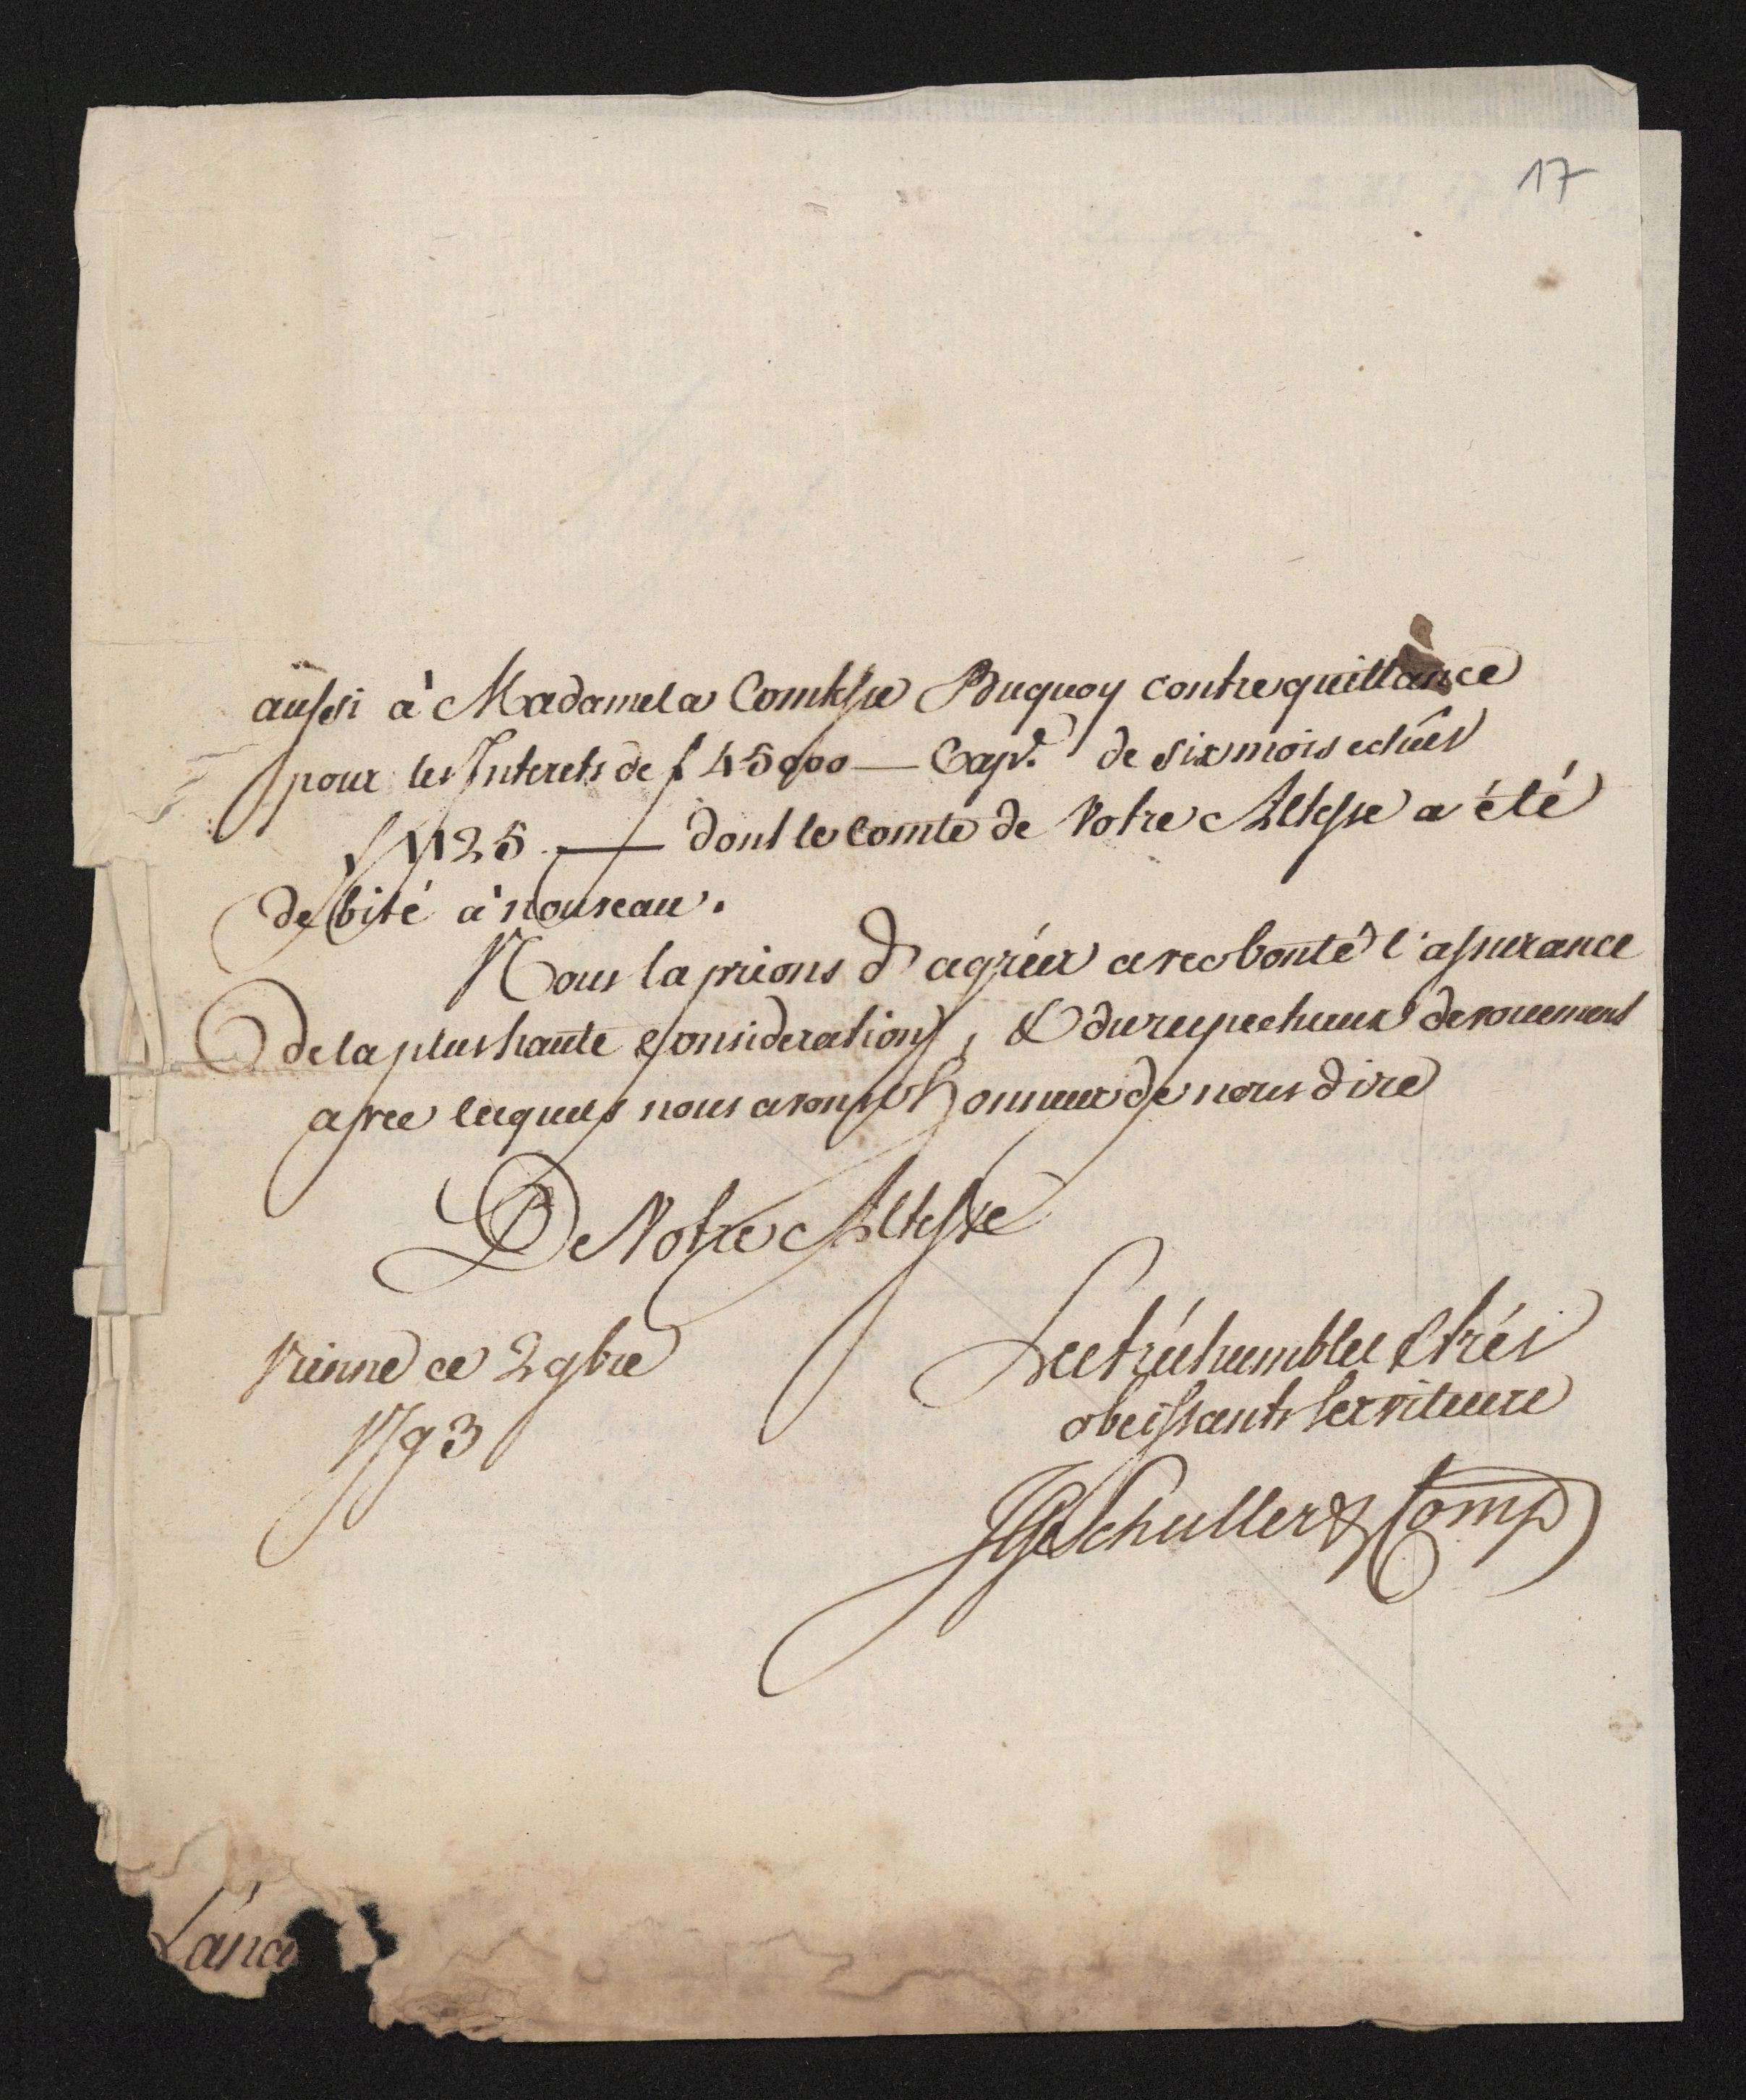 17
aussi à Madame la Comtesse Buquoy contre quittance
pour les Interets de f 45000 — Cap.l de six mois echûes
f 1125 — dont le Comte de Votre Altesse a été
debité à nouveau.
Nous la prions d'agréer avec bonté l'assurance
de la plus haute consideration, & du respectueux devouement
avec lesquels nous avons l'honneur de nous dire
De Votre Altesse
Vienne ce 2 9bre
1793
Les trés humbles & trés
obeissants Serviteurs
JG Schuller & Comp